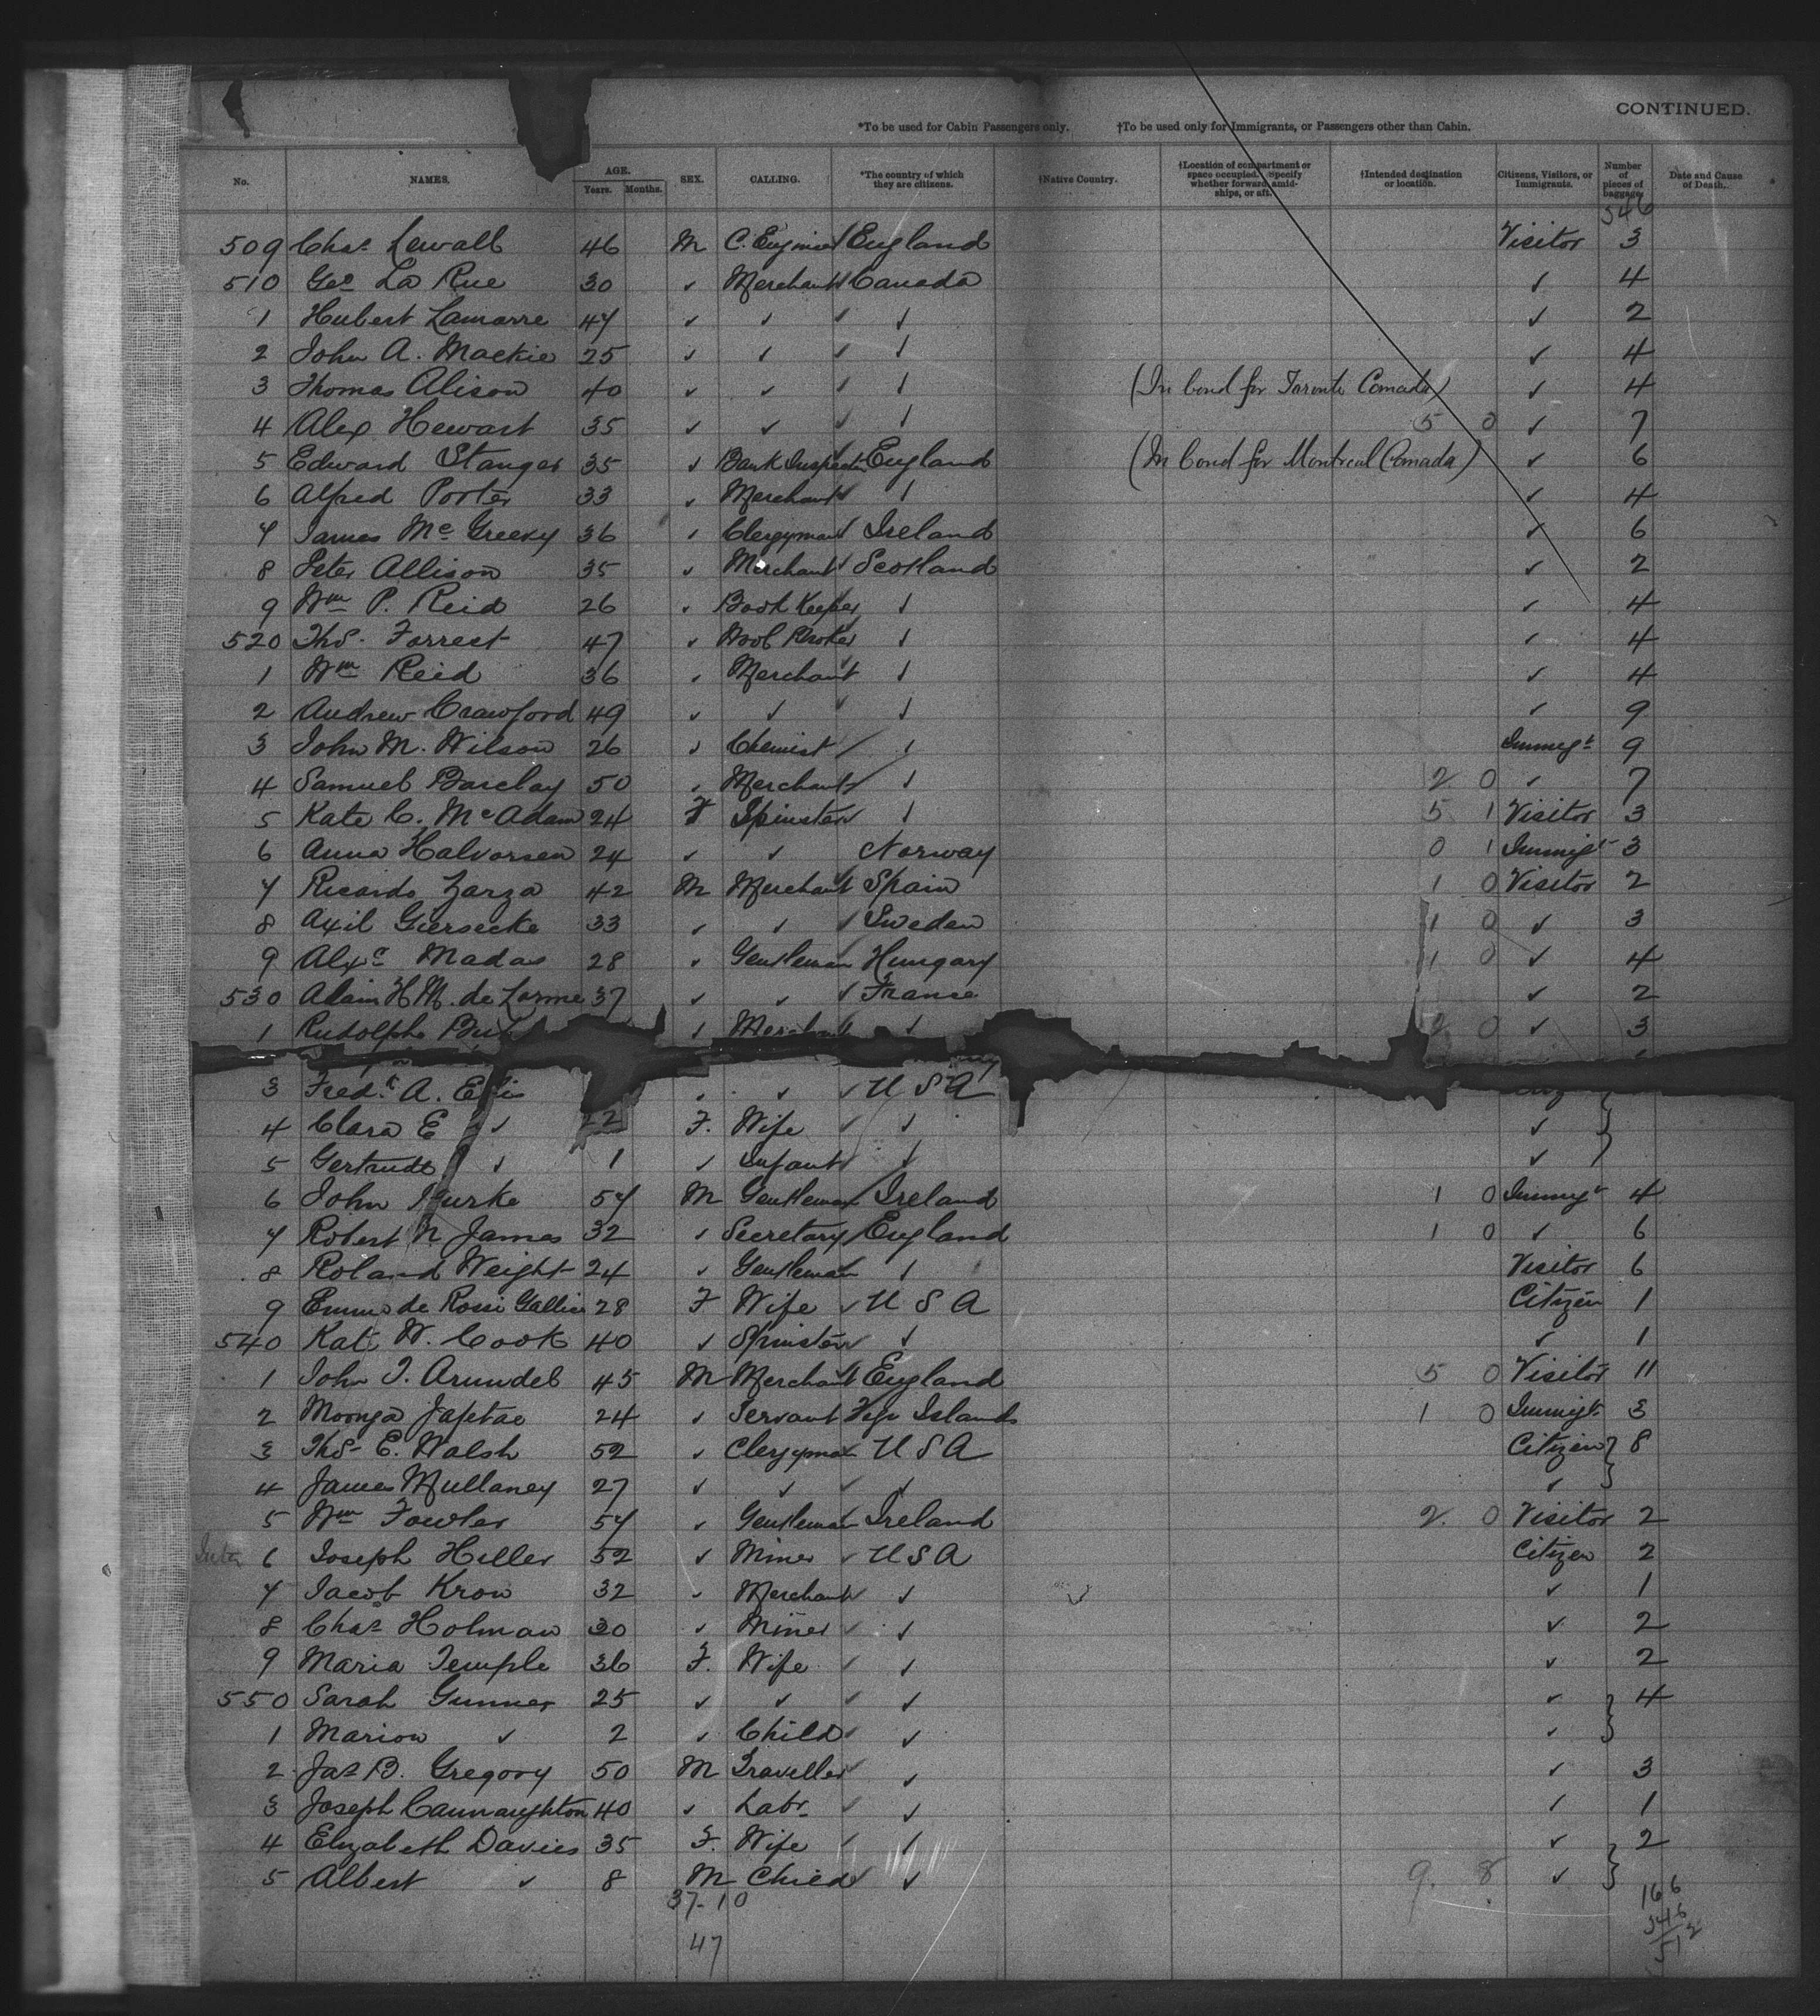 CONTINUED.
*To be used for Cabin Passengers only. †To be used only for Immigrants, or Passengers other than Cabin.
No. NAMES. AGE. Years. Months. SEX. CALLING. *The country of which they are citizens. †Native Country. †Location of compartment or space occupied. Specify whether forward, amidships, or aft. †Intended destination or location. Citizens, Visitors, or Immigrants. Number of pieces of baggage. Date and Cause of Death.
346
509 Chas Lewall 46 M C. Engineer England Visitor 3
510 Geo La Rue 30 ✓ Merchant Canada ✓ 4
1 Hubert Lamarre 47 ✓ ✓ ✓ ✓ ✓ 2
2 John A. Mackie 25 ✓ ✓ ✓ ✓ ✓ 4
3 Thomas Alison 40 ✓ ✓ ✓ ✓ (In bond for Toronto Canada) ✓ 4
4 Alex Hewart 35 ✓ ✓ ✓ ✓ 5 0 ✓ 7
5 Edward Stanger 35 ✓ Bank Inspector England (In bond for Montreal Canada) ✓ 6
6 Alfred Porter 33 ✓ Merchant ✓ ✓ ✓ 4
7 James McGreevy 36 ✓ Clergyman ✓ Ireland ✓ 6
8 Peter Allison 35 ✓ Merchant ✓ Scotland ✓ 2
9 Wm P. Reid 26 ✓ Book Keeper ✓ ✓ 4
520 Thos. Forrest 47 ✓ Wool Broker ✓ ✓ 4
1 Wm Reid 36 ✓ Merchant ✓ ✓ 4
2 Andrew Crawford 49 ✓ ✓ ✓ ✓ 9
3 John M. Wilson 26 ✓ Chemist ✓ Immigt 9
4 Samuel Barclay 50 ✓ Merchant ✓ 2 0 ✓ 7
5 Kate C. McAdam 24 F Spinster ✓ ✓ 5 1 Visitor 3
6 Anna Halvorsen 24 ✓ ✓ Norway 0 1 Immigt 3
7 Ricardo Zarza 42 M Merchant Spain 1 0 Visitor 2
8 Axil Giersecke 33 ✓ ✓ ✓ Sweden 1 0 ✓ 3
9 Alexr Madas 28 ✓ Gentleman Hungary 1 0 ✓ 4
530 Alain H M. de Lorme 37 ✓ ✓ ✓ France ✓ 2
1 Rudolphe ✓ Merchant ✓ 2 0 ✓ 3
3 Fredk A. Ellis ✓ ✓ ✓ U S A
4 Clara E ✓ 22 F. Wife ✓ ✓ ✓
5 Gertrude ✓ 1 ✓ Infant ✓ ✓ ✓
6 John Burke 57 M Gentleman Ireland 1 0 Immigt 4
7 Robert N James 32 ✓ Secretary England 1 0 ✓ 6
8 Roland Weight 24 ✓ Gentleman ✓ Visitor 6
9 Emma de Rossi Gallier 28 F Wife ✓ U S A Citizen 1
540 Kate W. Cook 40 ✓ Spinster ✓ ✓ ✓ 1
1 John T. Arundel 45 M Merchant England 5 0 Visitor 11
2 Moonga Japtae 24 ✓ Servant Fiji Islands 1 0 Immigt 3
3 Thos E. Walsh 52 ✓ Clergyman U S A Citizen 8
4 James Mullaney 27 ✓ ✓ ✓ ✓ ✓
5 Wm Fowler 57 ✓ Gentleman Ireland 2. 0 Visitor 2
6 Joseph Heller 52 ✓ Miner ✓ U S A Citizen 2
7 Jacob Kron 32 ✓ Merchant ✓ ✓ ✓ 1
8 Chas Holman 30 ✓ Miner ✓ ✓ ✓ 2
9 Maria Temple 36 F. Wife ✓ ✓ ✓ 2
550 Sarah Gunner 25 ✓ ✓ ✓ ✓ ✓ 4
1 Marion ✓ 2 ✓ Child ✓ ✓ ✓
2 Jas B. Gregory 50 M Traveller ✓ ✓ ✓ 3
3 Joseph Cannaughton 40 ✓ Labr. ✓ ✓ ✓ 1
4 Elizabeth Davies 35 F. Wife ✓ ✓ ✓ 2
5 Albert ✓ 8 M Child ✓ ✓ 9. 8 ✓
37-10
166
346
512
47